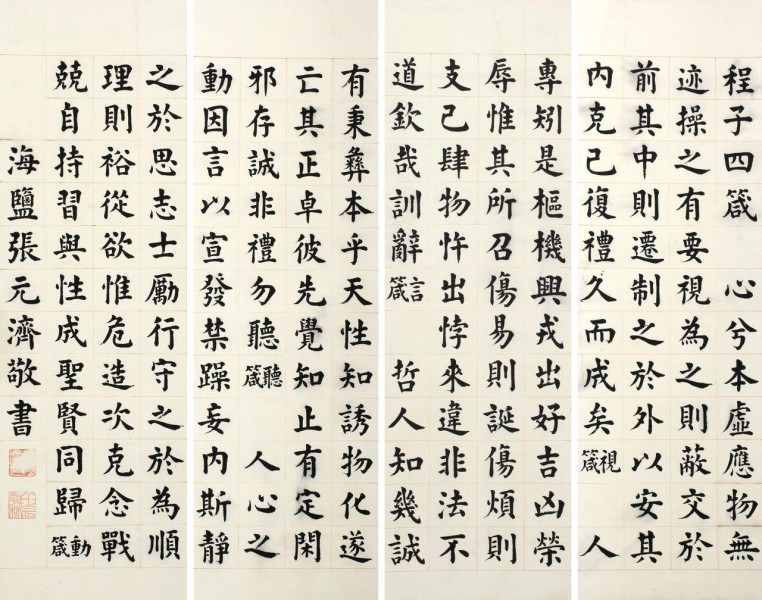 程子四箴　心兮本虛應物無
迹操之有要視為之則蔽交於
前其中則遷制之於外以安其
內克己復禮久而成矣視箴　人
專矧是樞機興戎出好吉凶榮
辱惟其所召傷易則誕傷煩則
支己肆物忤出悖來違非法不
道欽哉訓辭言箴　哲人知幾誠
有秉彝本乎天性知誘物化遂
亡其正卓彼先覺知止有定閑
邪存誠非禮勿聽聽箴　人心之
動因言以宣發禁躁妄內斯靜
之於思志士勵行守之於為順
理則裕從欲惟危造次克念戰
兢自持習與性成聖賢同歸動箴
海鹽張元濟敬書